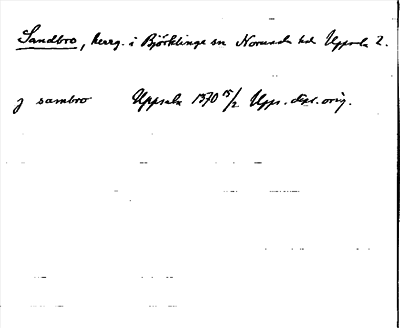 Sandbro, herrg. i Björklinge sn Norunda hd Uppsala l.
j sambro Uppsala 1370 15/2 Upps. dipl. orig.